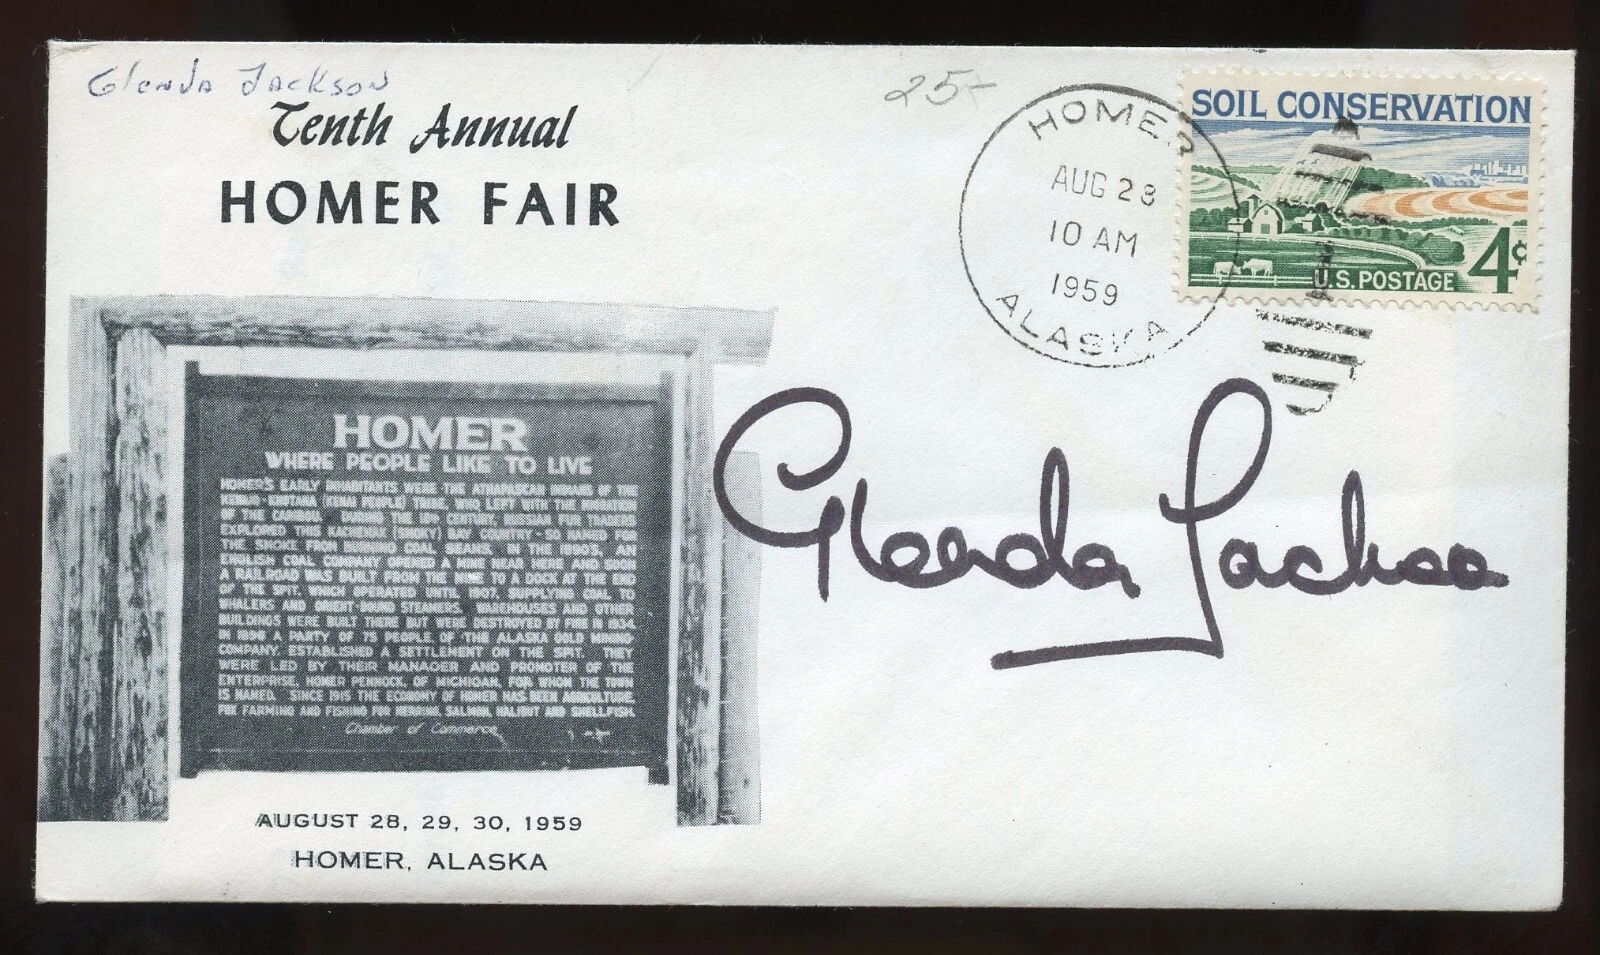 Glenda Jackson
25-
Tenth Annual
HOMER FAIR
HOMER
AUG 28
10 AM
1959
ALASKA
SOIL CONSERVATION
4¢
U.S. POSTAGE
HOMER
WHERE PEOPLE LIKE TO LIVE
HOMER'S EARLY INHABITANTS WERE THE ATHAPASCAN INDIANS OF THE
(KENAI PEOPLE) TRIBE, WHO LEFT WITH THE MIGRATION
OF THE CARIBOU. DURING THE 19TH CENTURY, RUSSIAN FUR TRADERS
EXPLORED THIS KACHEMAK (SMOKY) BAY COUNTRY - SO NAMED FOR
THE SMOKE FROM BURNING COAL SEAMS. IN THE 1890'S, AN
ENGLISH COAL COMPANY OPENED A MINE NEAR HERE AND SOON
A RAILROAD WAS BUILT FROM THE MINE TO A DOCK AT THE END
OF THE SPIT, WHICH OPERATED UNTIL 1907, SUPPLYING COAL TO
WHALERS AND ORIENT-BOUND STEAMERS. WAREHOUSES AND OTHER
BUILDINGS WERE BUILT THERE BUT WERE DESTROYED BY FIRE IN 1934.
IN 1896 A PARTY OF 75 PEOPLE OF THE ALASKA GOLD MINING
COMPANY ESTABLISHED A SETTLEMENT ON THE SPIT. THEY
WERE LED BY THEIR MANAGER AND PROMOTER OF THE
ENTERPRISE, HOMER PENNOCK, OF MICHIGAN, FOR WHOM THE TOWN
IS NAMED. SINCE 1915 THE ECONOMY OF HOMER HAS BEEN AGRICULTURE,
FOX FARMING AND FISHING FOR HERRING, SALMON, HALIBUT AND SHELLFISH.
Chamber of Commerce
Glenda Jackson
AUGUST 28, 29, 30, 1959
HOMER, ALASKA